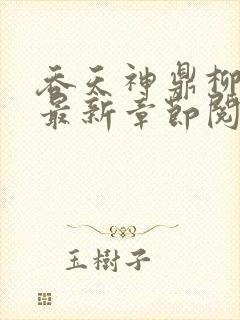 吞天神鼎柳
最新章節閱
玉樹子